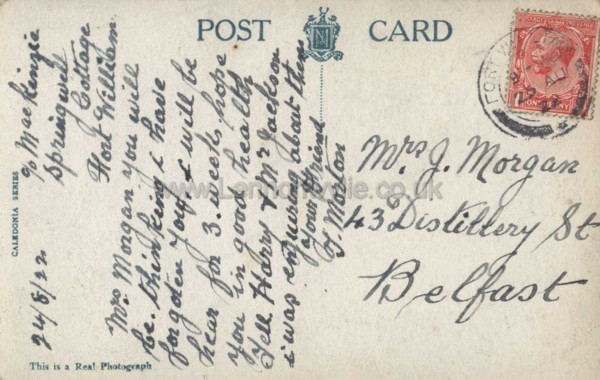 POST CARD
c/o MacKenzie
Springwell
Cottage
Fort William
24/8/22
Mrs Morgan you will
be thinking i have
forgoten you, i will be
hear for 3. weeks hope
you in good health
Tell Harry & Mr Jackson
i was enquring about them
your friend
Morton
Mrs J. Morgan
43 Distillery St
Belfast
CALEDONIA SERIES
This is a Real Photograph
FORT W
ONE PENNY